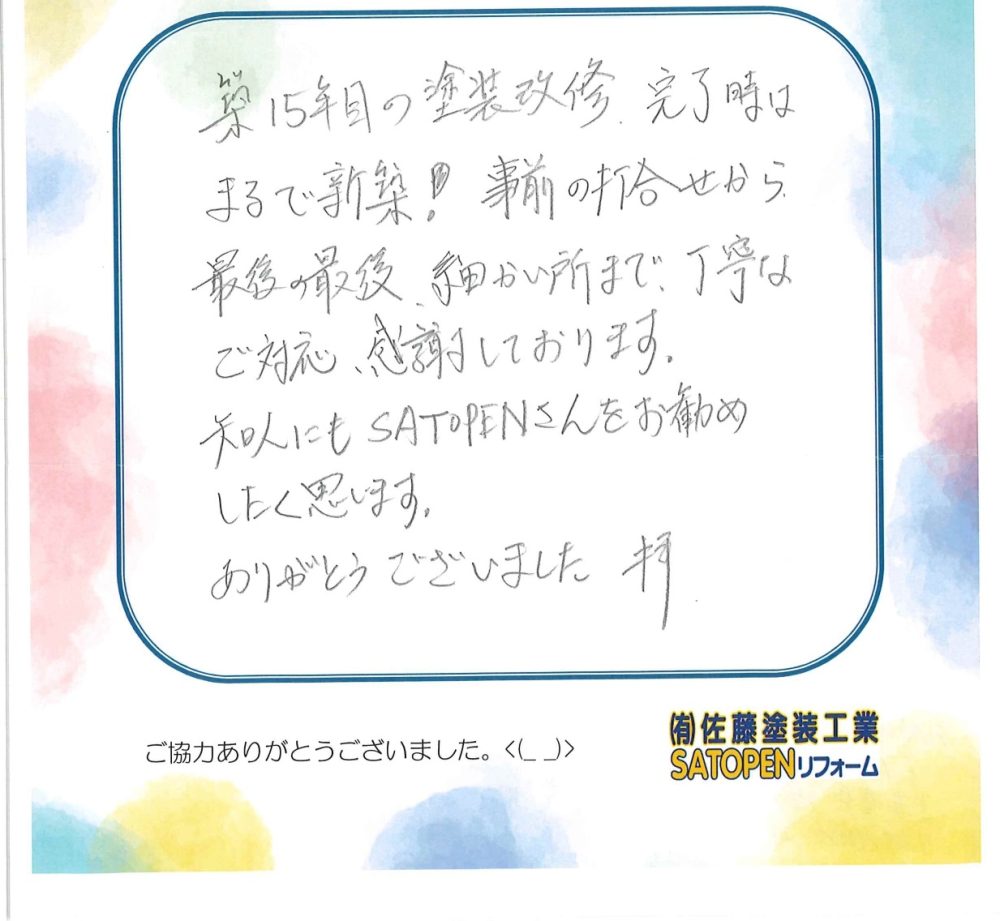 築15年目の塗装改修、完了時は
まるで新築！事前の打合せから
最後の最後、細かい所まで、丁寧な
ご対応、感謝しております。
知人にもSATOPENさんをお勧め
したく思います。
ありがとうございました 拝
ご協力ありがとうございました。<(_ _)>
㈲佐藤塗装工業
SATOPENリフォーム